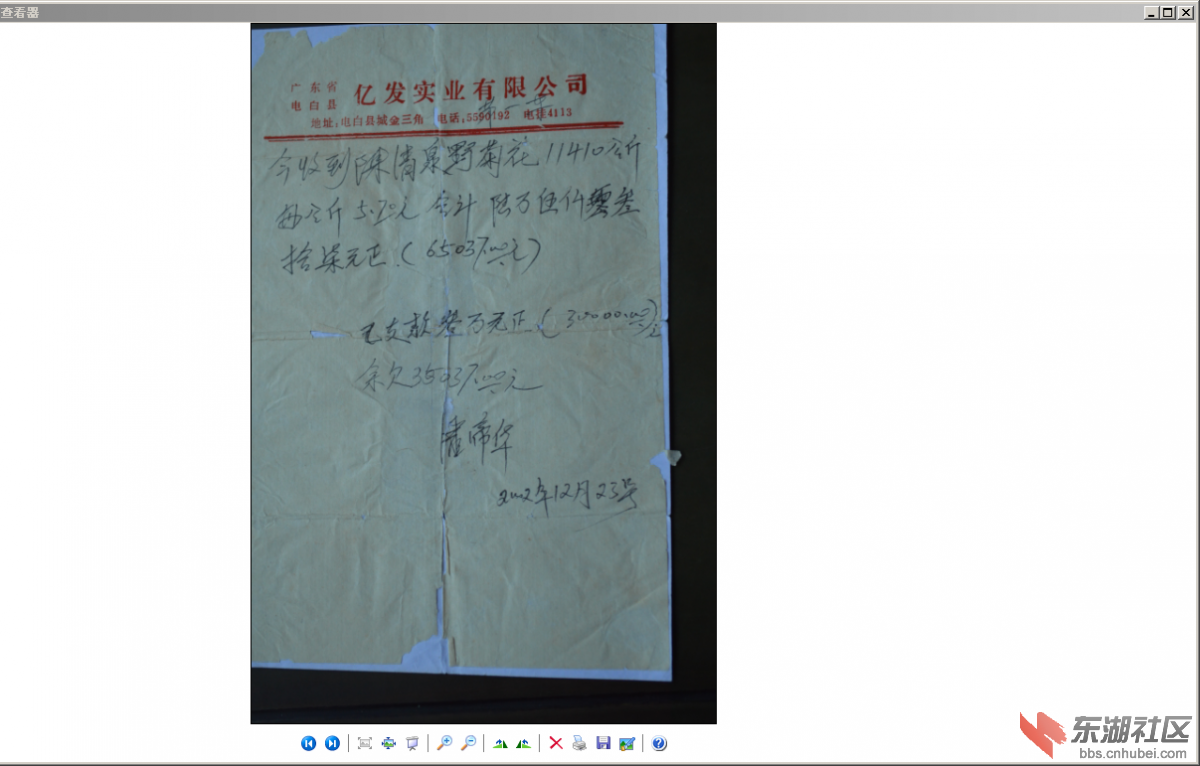 查看器
广东省
电白县
亿发实业有限公司
地址:电白县城金三角 电话:5590192 电挂4113
今收到陈清泉野菊花11410公斤
每公斤5.70元 合计 陆万伍仟零叁
拾柒元正.(65037.00元)
已支款叁万元正.(30000.00元)
余欠35037.00元
帝华
2002年12月23号
东湖社区
bbs.cnhubei.com